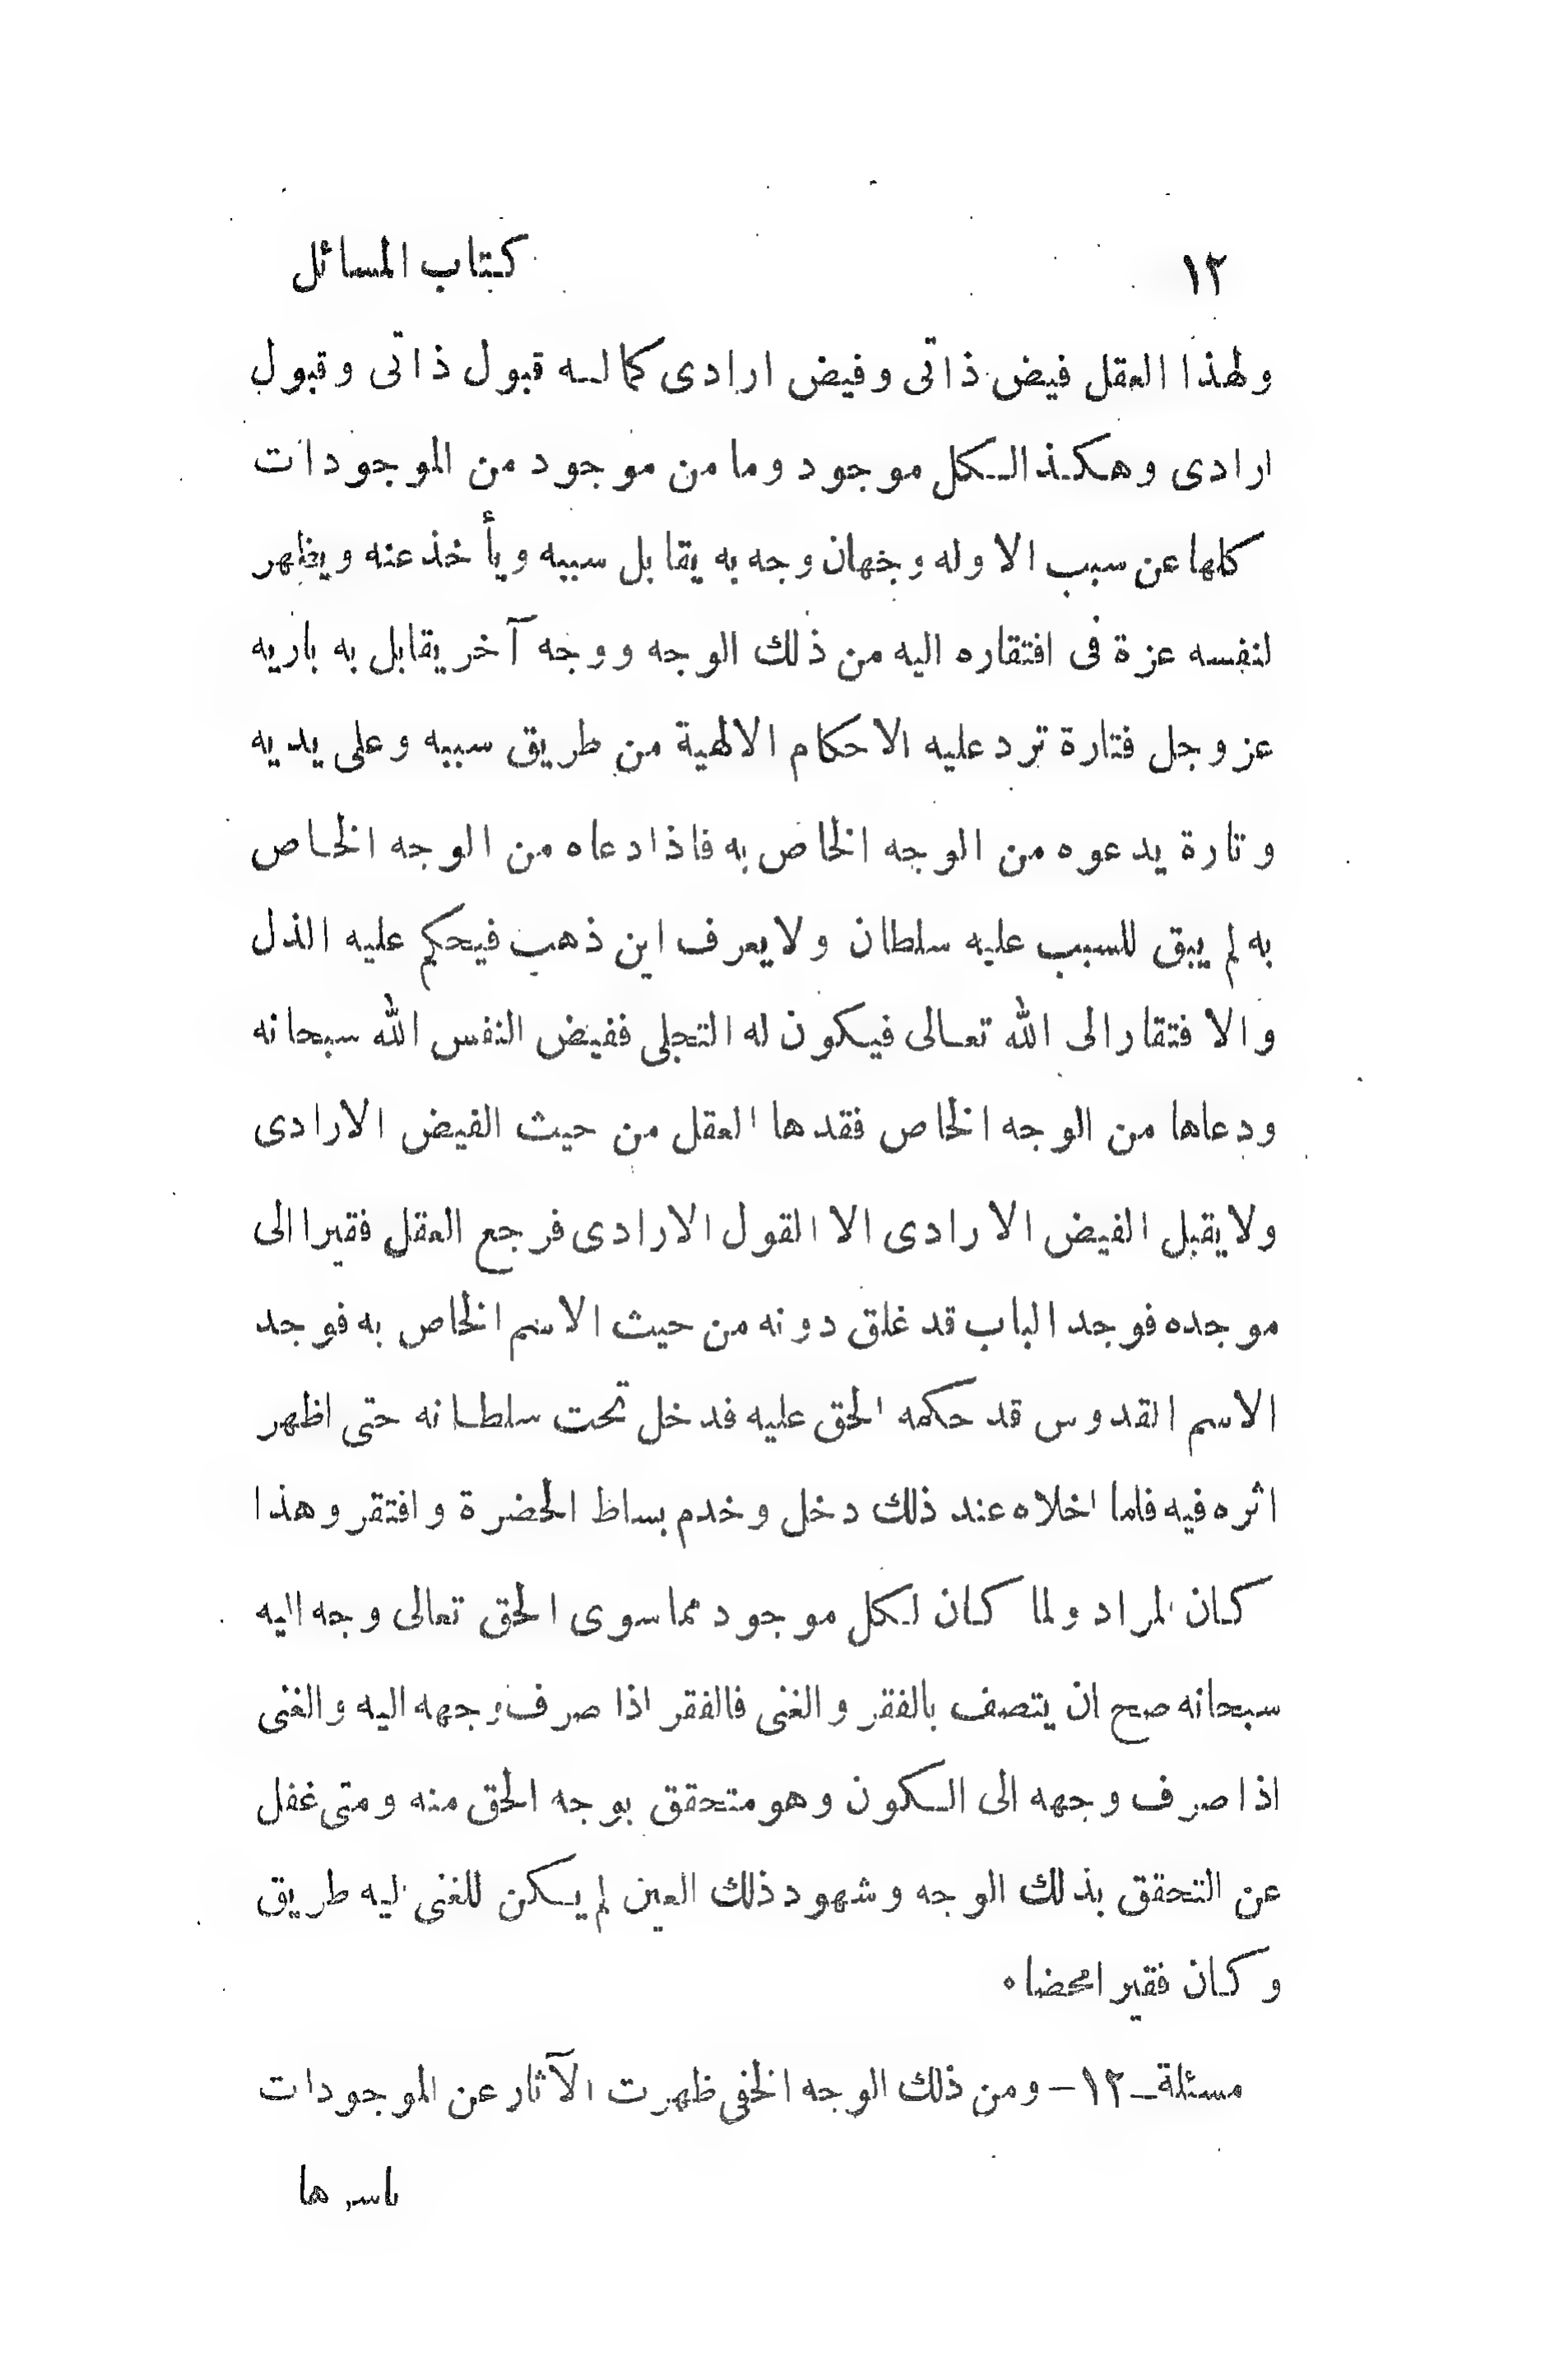 ١٢ كتاب المسائل
ولهذا العقل فيض ذاتى وفيض ارادى كما له قبول ذاتى وقبول
ارادى وهكذا لكل موجود وما من موجود من الموجودات
كلها عن سبب الا وله وجهان وجه به يقابل سببه ويأخذ عنه ويظهر
لنفسه عزة فى افتقاره اليه من ذلك الوجه ووجه آخر يقابل به باريه
عز وجل فتارة ترد عليه الاحكام الالهية من طريق سببه وعلى يديه
وتارة يدعوه من الوجه الخاص به فاذا دعاه من الوجه الخاص
به لم يبق للسبب عليه سلطان ولا يعرف اين ذهب فيحكم عليه الذل
والافتقار الى الله تعالى فيكون له التجلى ففيض النفس الله سبحانه
ودعاها من الوجه الخاص فقدها العقل من حيث الفيض الارادى
ولا يقبل الفيض الارادى الا القول الارادى فرجع العقل فقيرا الى
موجده فوجد الباب قد غلق دونه من حيث الاسم الخاص به فوجد
الاسم القدوس قد حكمه الحق عليه فدخل تحت سلطانه حتى اظهر
اثره فيه فلما اخلاه عند ذلك دخل وخدم بساط الحضرة وافتقر وهذا
كان المراد ولما كان لكل موجود مما سوى الحق تعالى وجه اليه
سبحانه صح ان يتصف بالفقر والغنى فالفقر اذا صرف وجهه اليه والغنى
اذا صرف وجهه الى الكون وهو متحقق بوجه الحق منه ومتى غفل
عن التحقق بذلك الوجه وشهود ذلك العين لم يكن للغنى اليه طريق
وكان فقيرا محضا ٠
مسئلة ـ ١٢ ـ ومن ذلك الوجه الخفى ظهرت الآثار عن الموجودات
باسرها